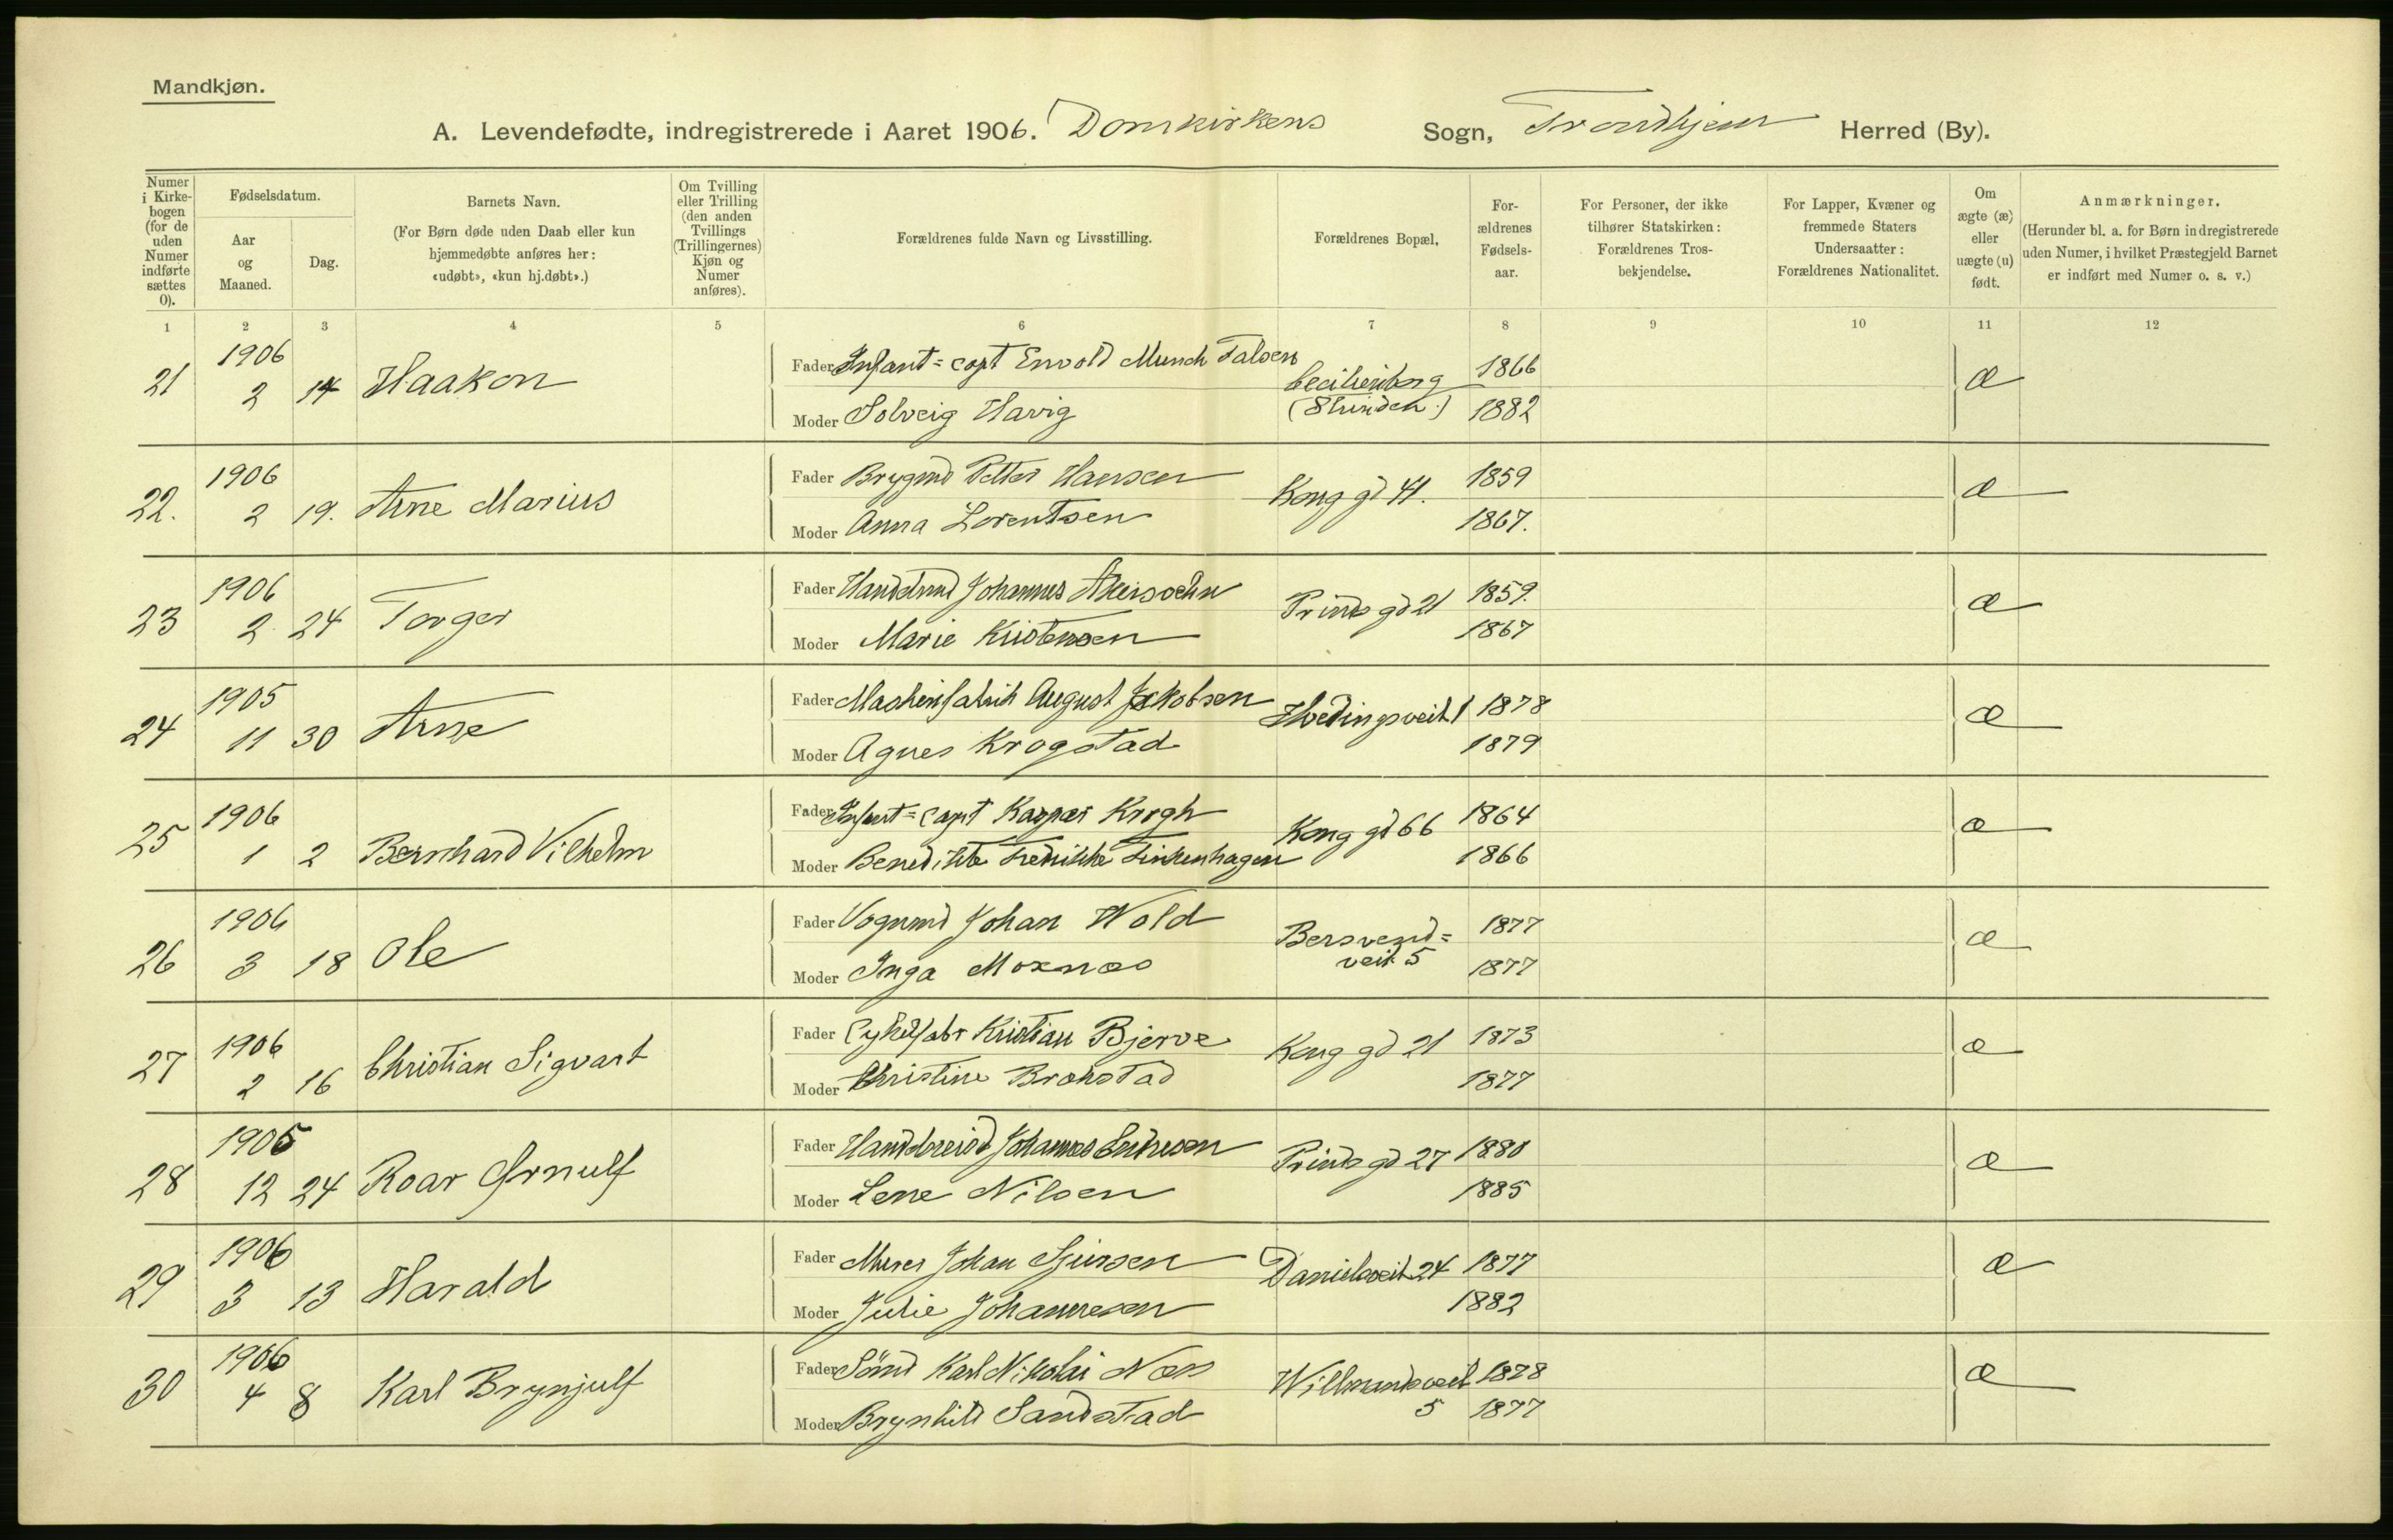 Mandkjøn.
A. Levendefødte, indregistrerede i Aaret 1906. Domkirkens Sogn, Trondhjem Herred (By).
Numer i Kirkebogen (for de uden Numer indførte sættes 0).
Fødselsdatum.
Aar og Maaned.
Dag.
Barnets Navn.
(For Børn døde uden Daab eller kun hjemmedøbte anføres her: «udøbt», «kun hj.døbt».)
Om Tvilling eller Trilling (den anden Tvillings (Trillingernes) Kjøn og Numer anføres).
Forældrenes fulde Navn og Livsstilling.
Forældrenes Bopæl.
Forældrenes Fødselsaar.
For Personer, der ikke tilhører Statskirken: Forældrenes Trosbekjendelse.
For Lapper, Kvæner og fremmede Staters Undersaatter: Forældrenes Nationalitet.
Om ægte (æ) eller uægte (u) født.
Anmærkninger.
(Herunder bl. a. for Børn indregistrerede uden Numer, i hvilket Præstegjeld Barnet er indført med Numer o. s. v.)
1 2 3 4 5 6 7 8 9 10 11 12
21 1906 2 14 Haakon
Fader Infant=capt Munch 1866 æ
Moder Solveig Havig (Strinden) 1882
22. 1906 2 19. Arne Marius
Fader Brygmd Petter Hansen Kong gd 41. 1859 æ
Moder Anna Lorentsen 1867.
23 1906 2 24 Torger
Fader Johannes Prinds gd 21 1859. æ
Moder Marie Kristensen 1867
24 1905 11 30 Arne
Fader August Jakobsen 1 1878 æ
Moder Agnes Krogstad 1879
25 1906 1 2 Bernhard Vilhelm
Fader Infant=capt Kaspar Krogh Kong gd 66 1864 æ
Moder Benedikte Fredrikke Finkenhagen 1866
26 1906 3 18 Ole
Fader Vognmd Johan Wold Bersvend= 1877 æ
Moder Inga Moxnæs veit 5 1877
27 1906 2 16 Christian Sigvart
Fader Cykelfabr Kristian Bjerve Kong gd 21 1873 æ
Moder Christine Brækstad 1877
28 1905 12 24 Roar Ørnulf
Fader Johannes Prinds gd 27 1880 æ
Moder Lene Nilsen 1885
29 1906 3 13 Harald
Fader Murer Johan Danielsveit 24 1877 æ
Moder Julie Johannesen 1882
30 1906 4 8 Karl Brynjulf
Fader Karl Nikolai Næss Willmandsveit 1878 æ
Moder Brynhild Sandstad 5 1877